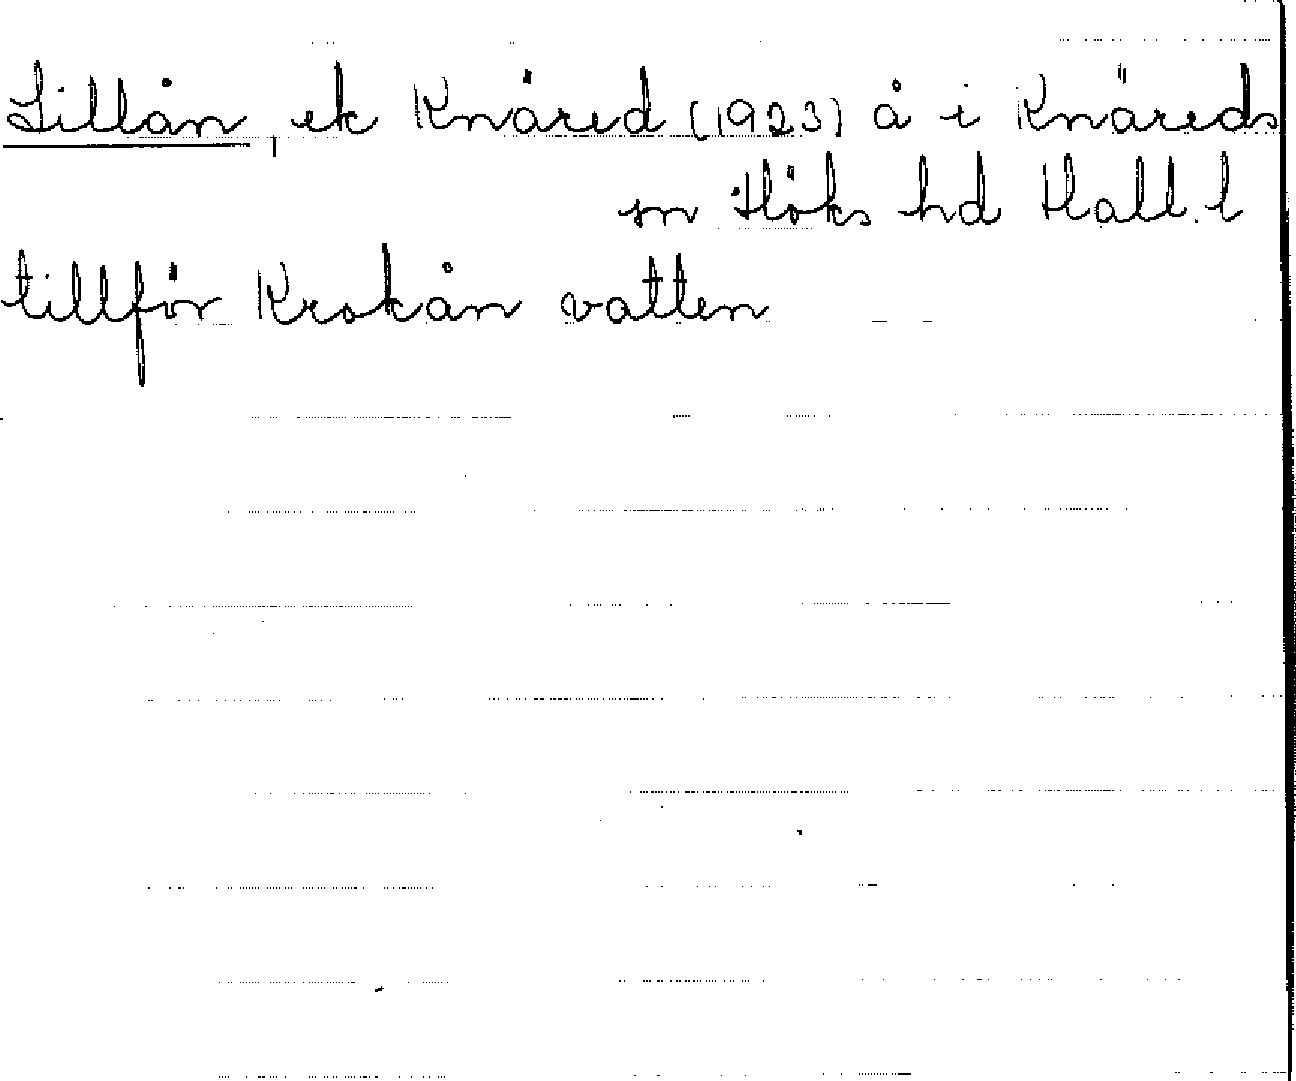 Lillån, ek Knäred (1923) å i Knäreds
sn Höks hd Hall. l
tillför Krokån vatten